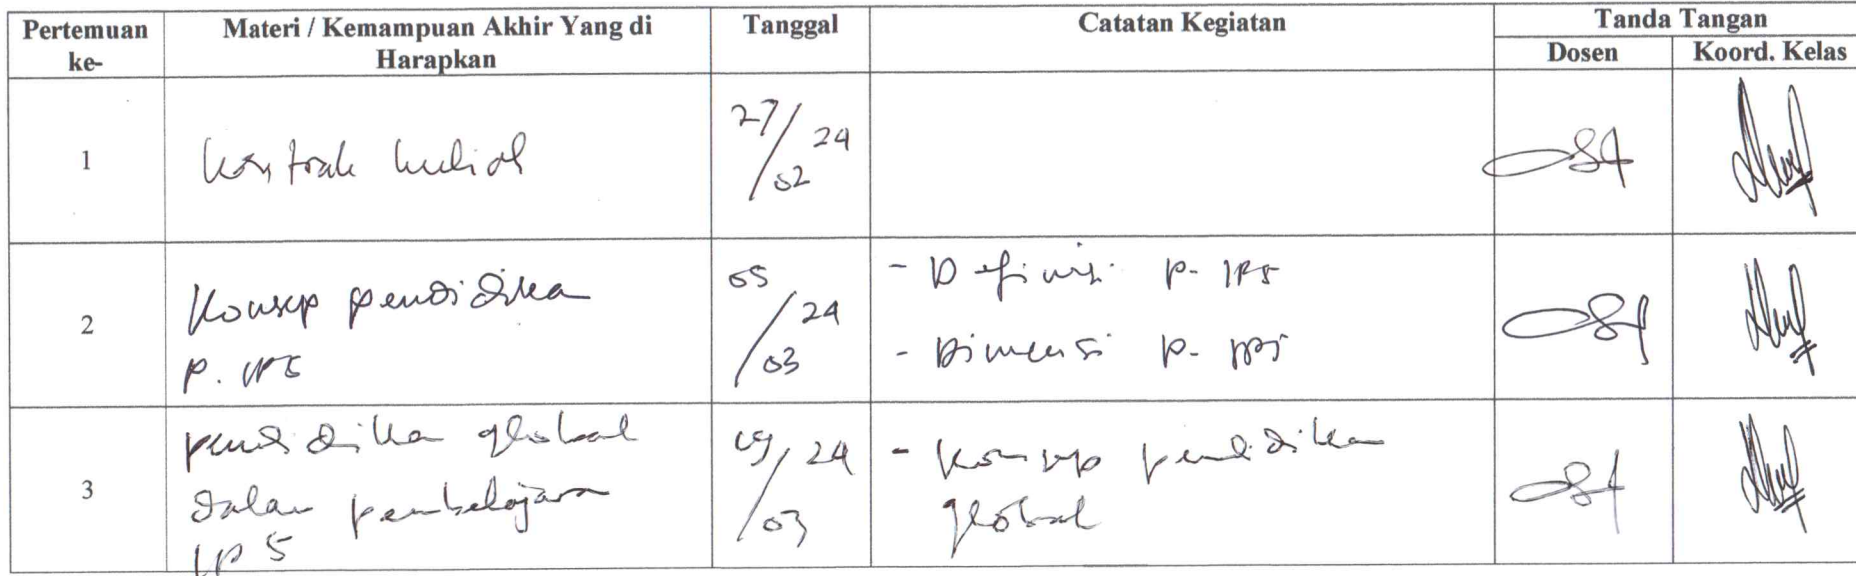 Pertemuan ke-
Materi / Kemampuan Akhir Yang di Harapkan
Tanggal
Catatan Kegiatan
Tanda Tangan
Dosen
Koord. Kelas
1
Kontrak kuliah
27/02 24
2
Konsep pendidika
P. IPS
05/03 24
- Definisi P. IPS
- Dimensi P. IPS
3
pendidika global
dalam pembelajaran
IPS
/03 24
- Konsep pendidika
global